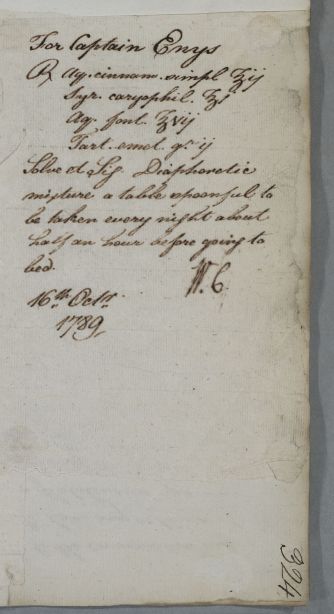 For Captain Enys
℞ Aq. cinnam. simpl ℥ij
Syr. caryophil. ℥i
Aq. font ℥vij
Tart. emet gr ij
Solve et Sig. Diaphoretic
mixture a table spoonful to
be taken every night about
half an hour before going to
bed.
W. C.
16th Octr
1789
324